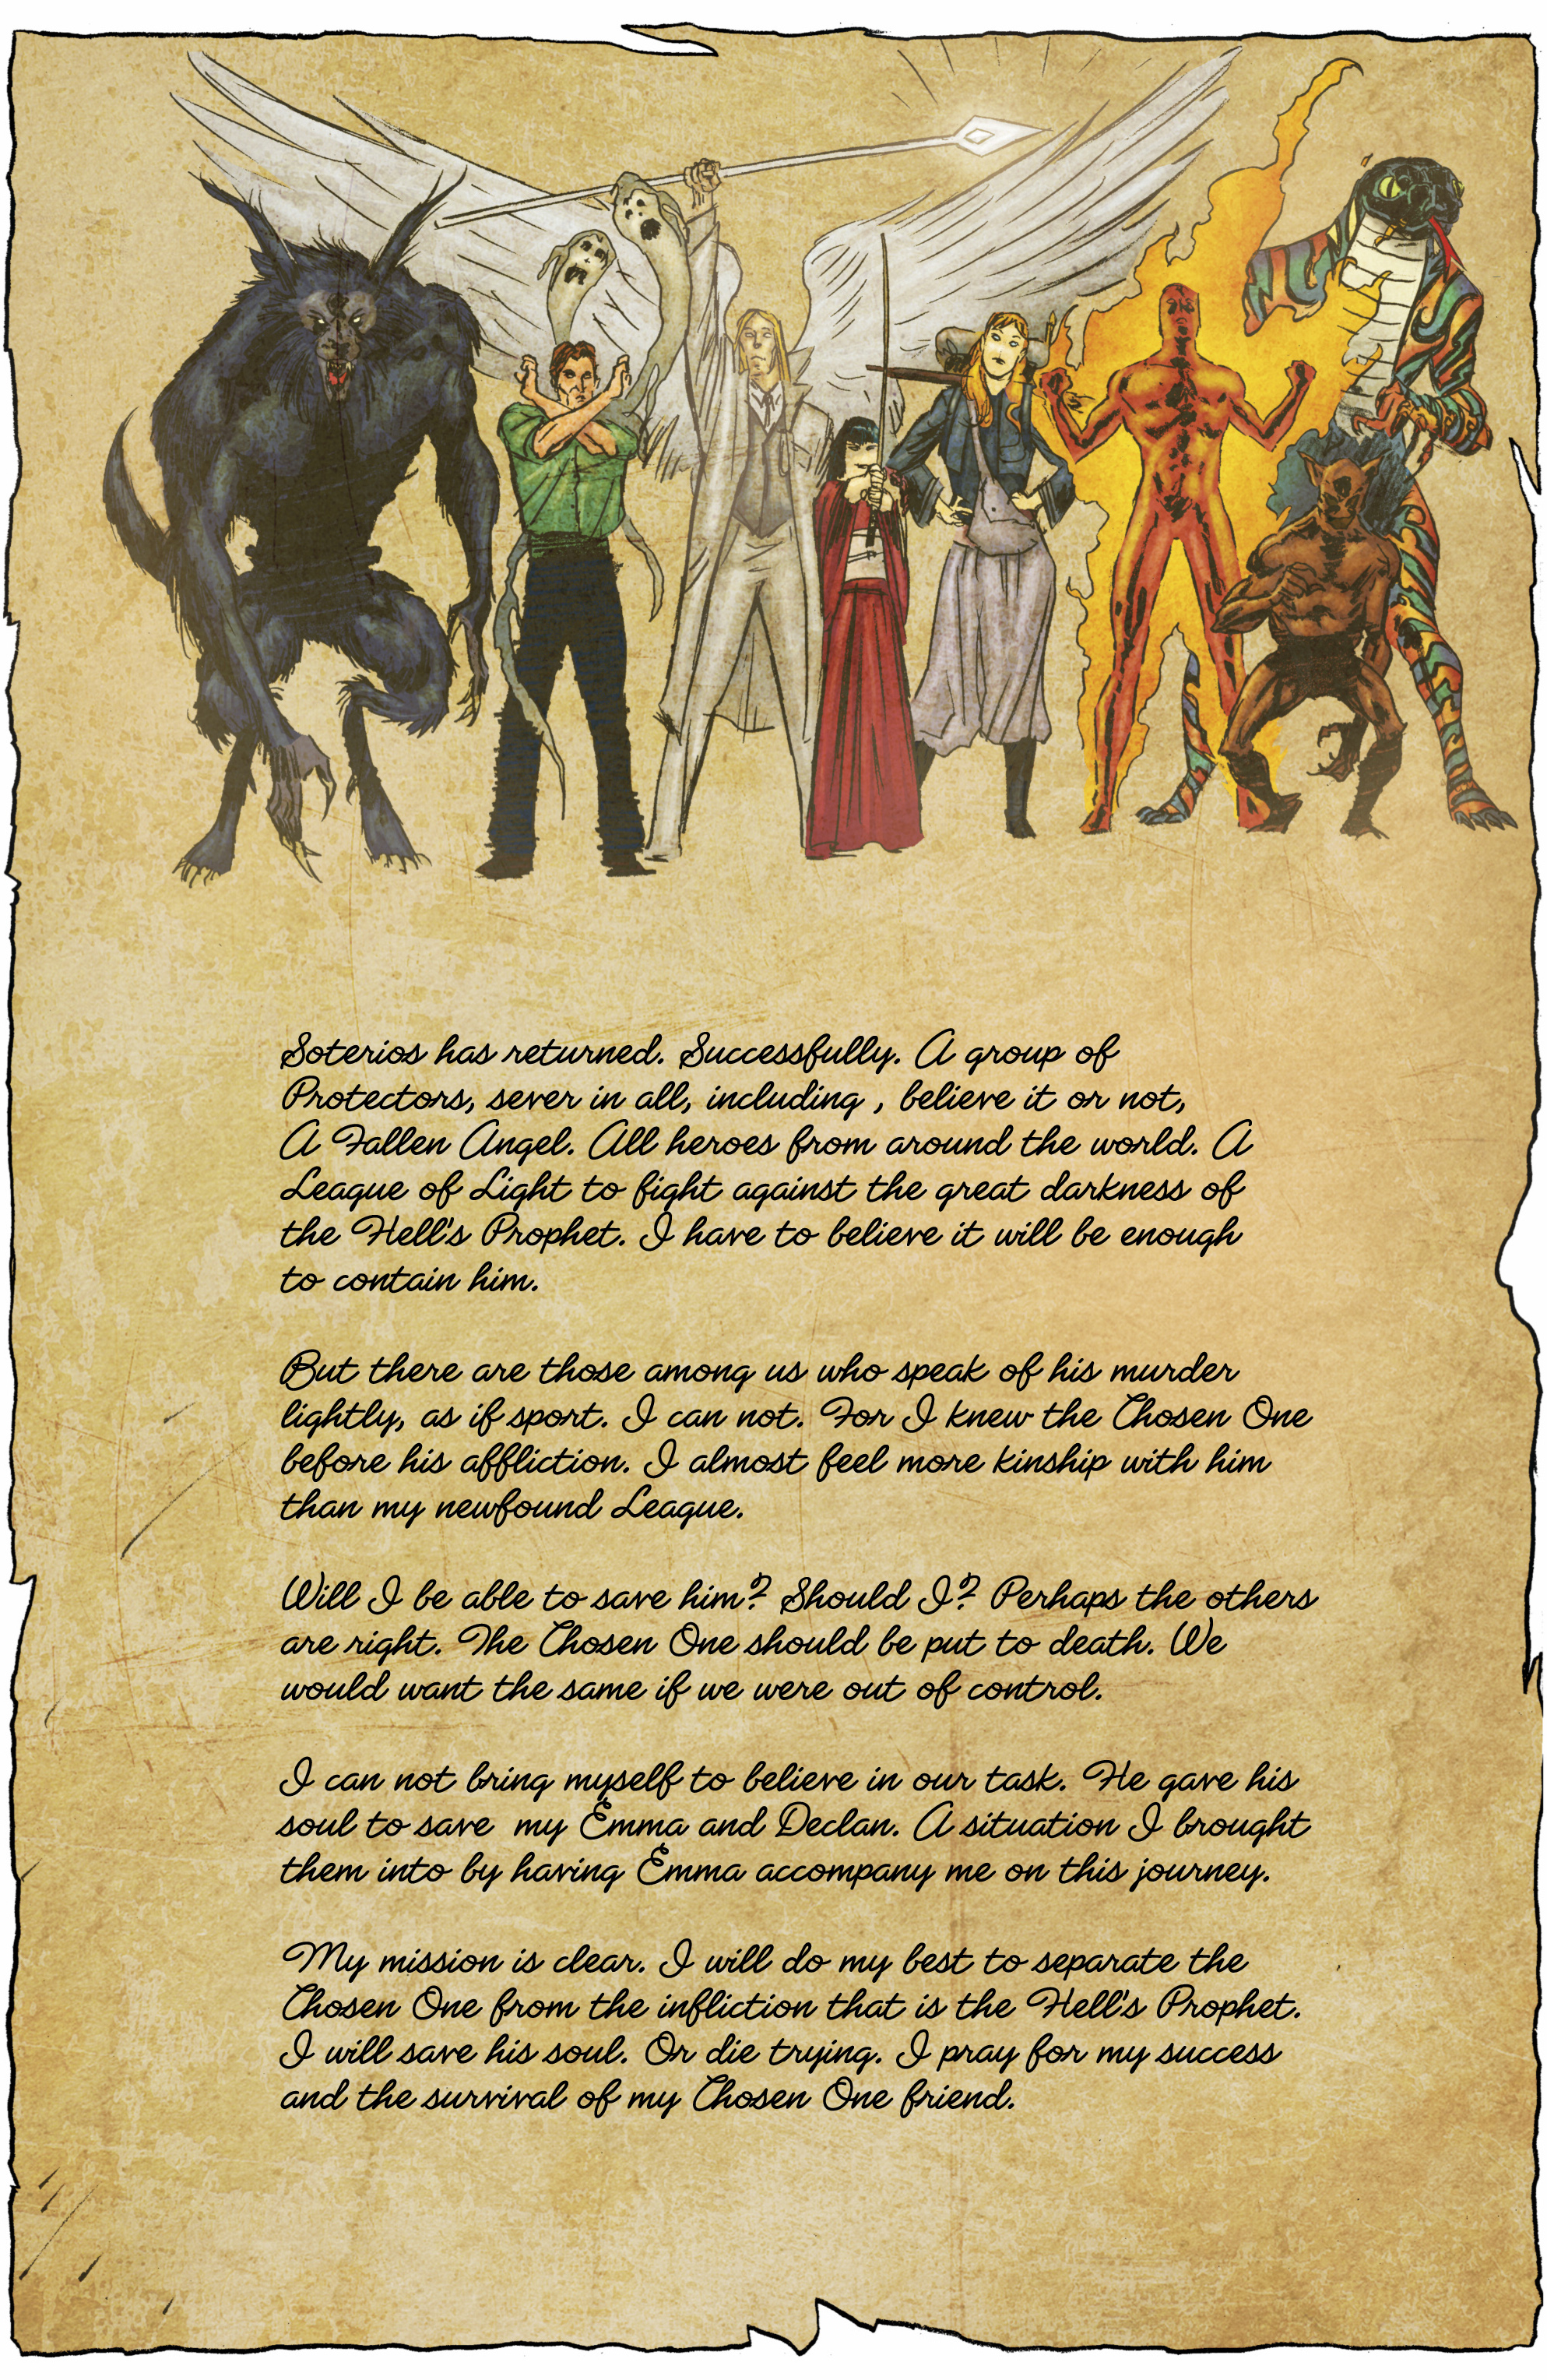 Soterios has returned. Successfully. A group of
Protectors, sever in all, including , believe it or not,
A Fallen Angel. All heroes from around the world. A
League of Light to fight against the great darkness of
the Hell's Prophet. I have to believe it will be enough
to contain him.
But there are those among us who speak of his murder
lightly, as if sport. I can not. For I knew the Chosen One
before his affliction. I almost feel more kinship with him
than my newfound League.
Will I be able to save him? Should I? Perhaps the others
are right. The Chosen One should be put to death. We
would want the same if we were out of control.
I can not bring myself to believe in our task. He gave his
soul to save my Emma and Declan. A situation I brought
them into by having Emma accompany me on this journey.
My mission is clear. I will do my best to separate the
Chosen One from the infliction that is the Hell's Prophet.
I will save his soul. Or die trying. I pray for my success
and the survival of my Chosen One friend.